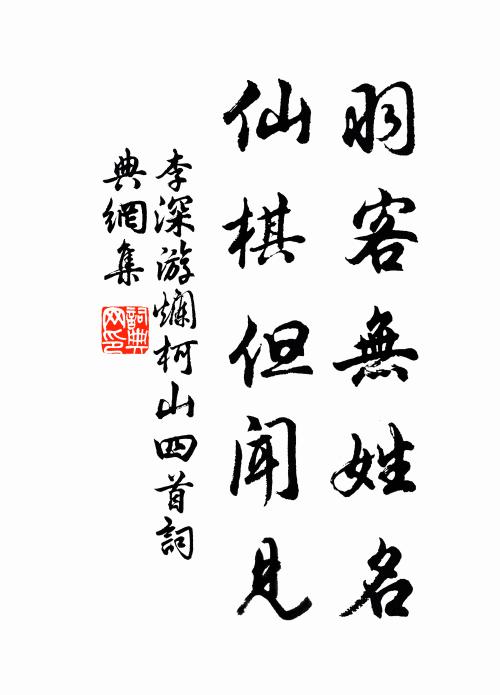 羽客無姓名
仙棋但聞見
李深游爛柯山四首詞
典網集
詞典
网印